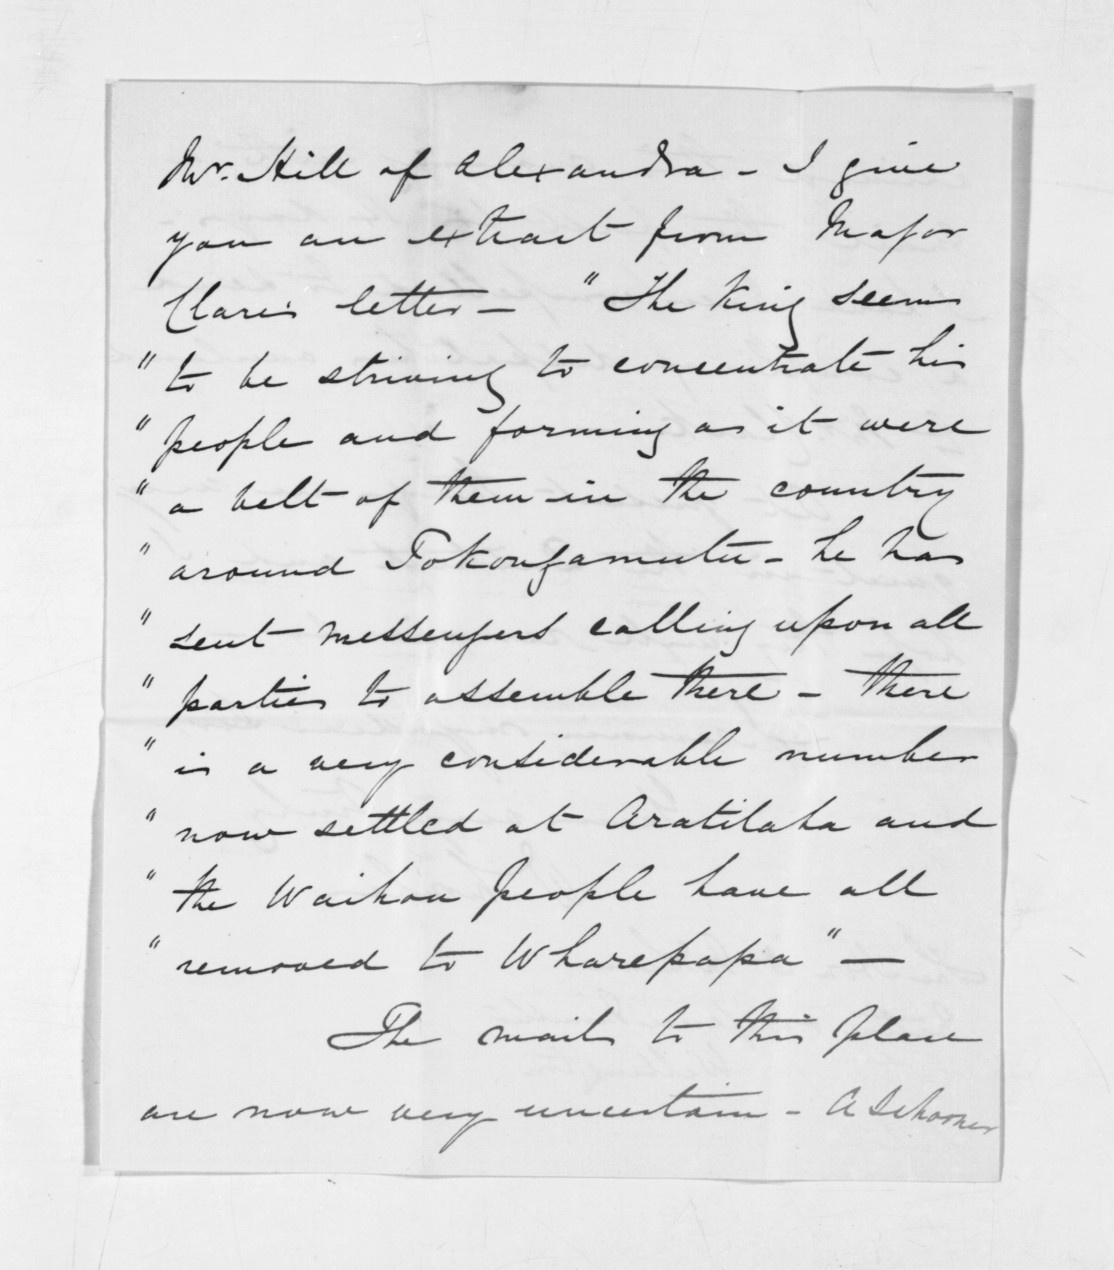 Mr. Hill of Alexandra - I give
you an extract from Major
Clare's letter - "The King seems
" to be striving to concentrate his
" people and forming as it were
" a belt of them in the country
" around Tokongamutu - he has
" sent messengers calling upon all
" parties to assemble there - there
" is a very considerable number
" now settled at Aratitaha and
" the Waikou People have all
" removed to Wharepapa" -
The mails to this place
are now very uncertain - A Schooner